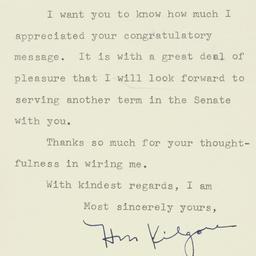 I want you to know how much I
appreciated your congratulatory
message. It is with a great deal of
pleasure that I will look forward to
serving another term in the Senate
with you.
Thanks so much for your thought-
fulness in wiring me.
With kindest regards, I am
Most sincerely yours,
Kilgore